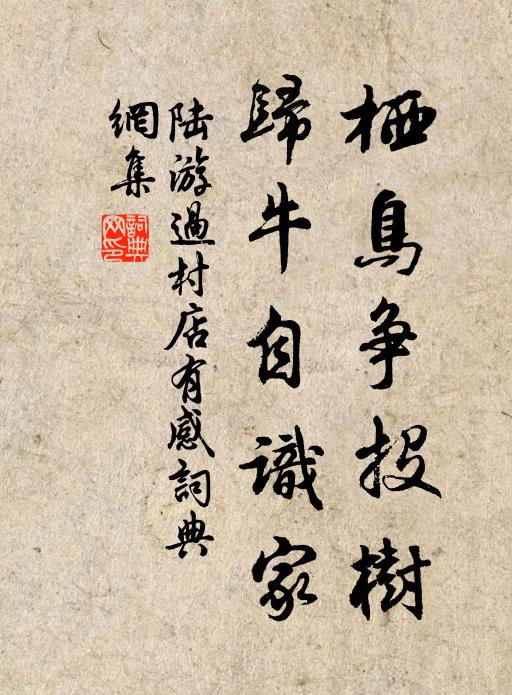 栖鳥争投樹
歸牛自識家
陸游過村店有感詞典
網集
詞典
网印